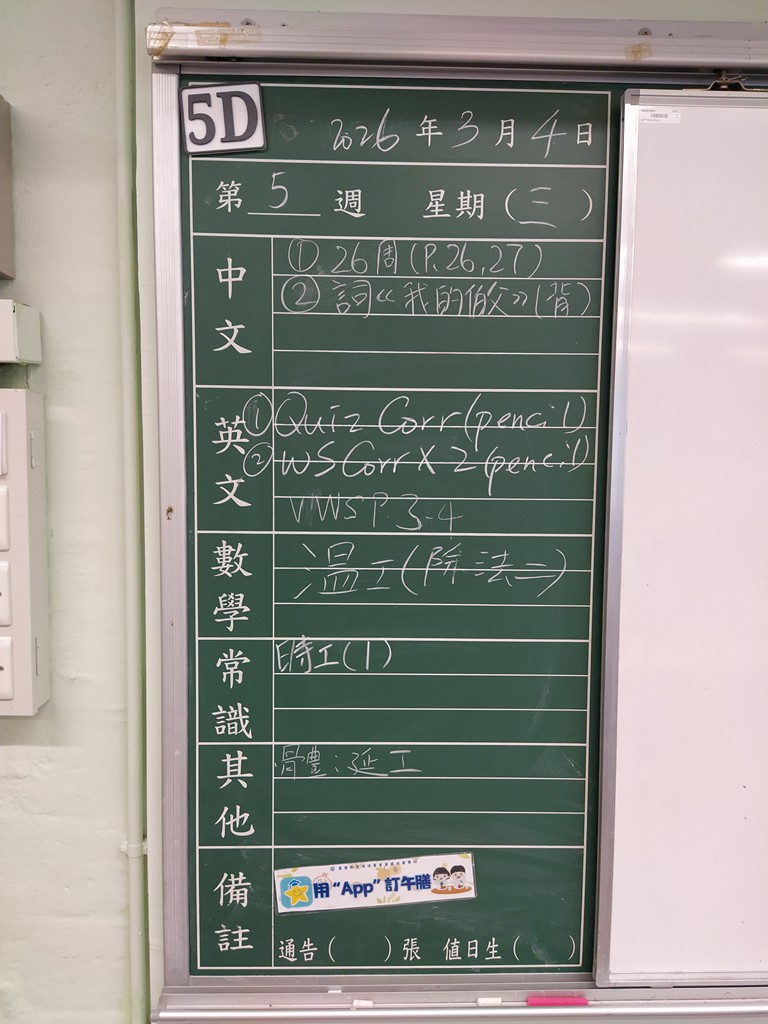 5D
2026年3月4日
第5週 星期(三)
中文
① 26周(P.26,27)
② 詞《我的伯父》(背)
英文
① Quiz Corr(pencil)
② WS Corr X 2(pencil)
VWS P.3-4
數學
溫工(除法二)
常識
時工(1)
其他
體:延工
備註
用“App”訂午膳
通告( )張 值日生( )